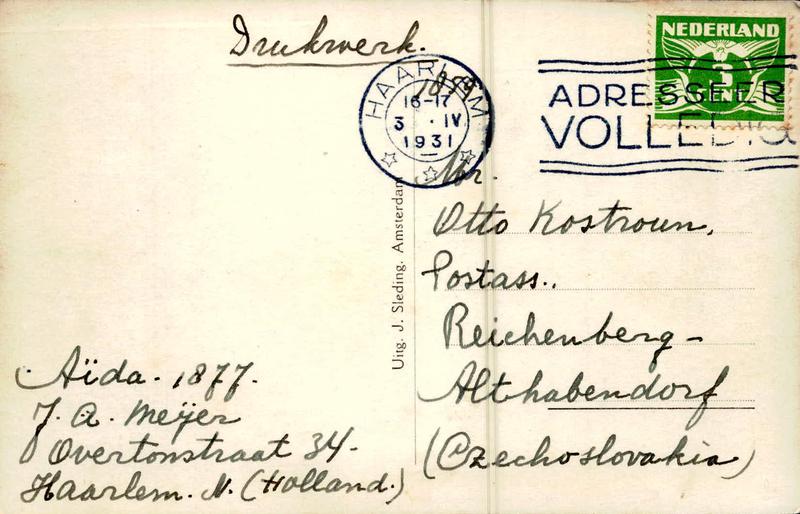 Drukwerk.
1899
HAARLEM
16-17
3 · IV
1931
NEDERLAND
3
CENT
ADRESSEER
VOLLEDIG
Mr.
Otto Kostroun,
Postass.,
Reichenberg-
Althabendorf
(Czechoslovakia)
Uitg. J. Sleding. Amsterdam
Aïda. 1877.
J. A. Meÿer
Overtonstraat 34-
Haarlem. N. (Holland.)